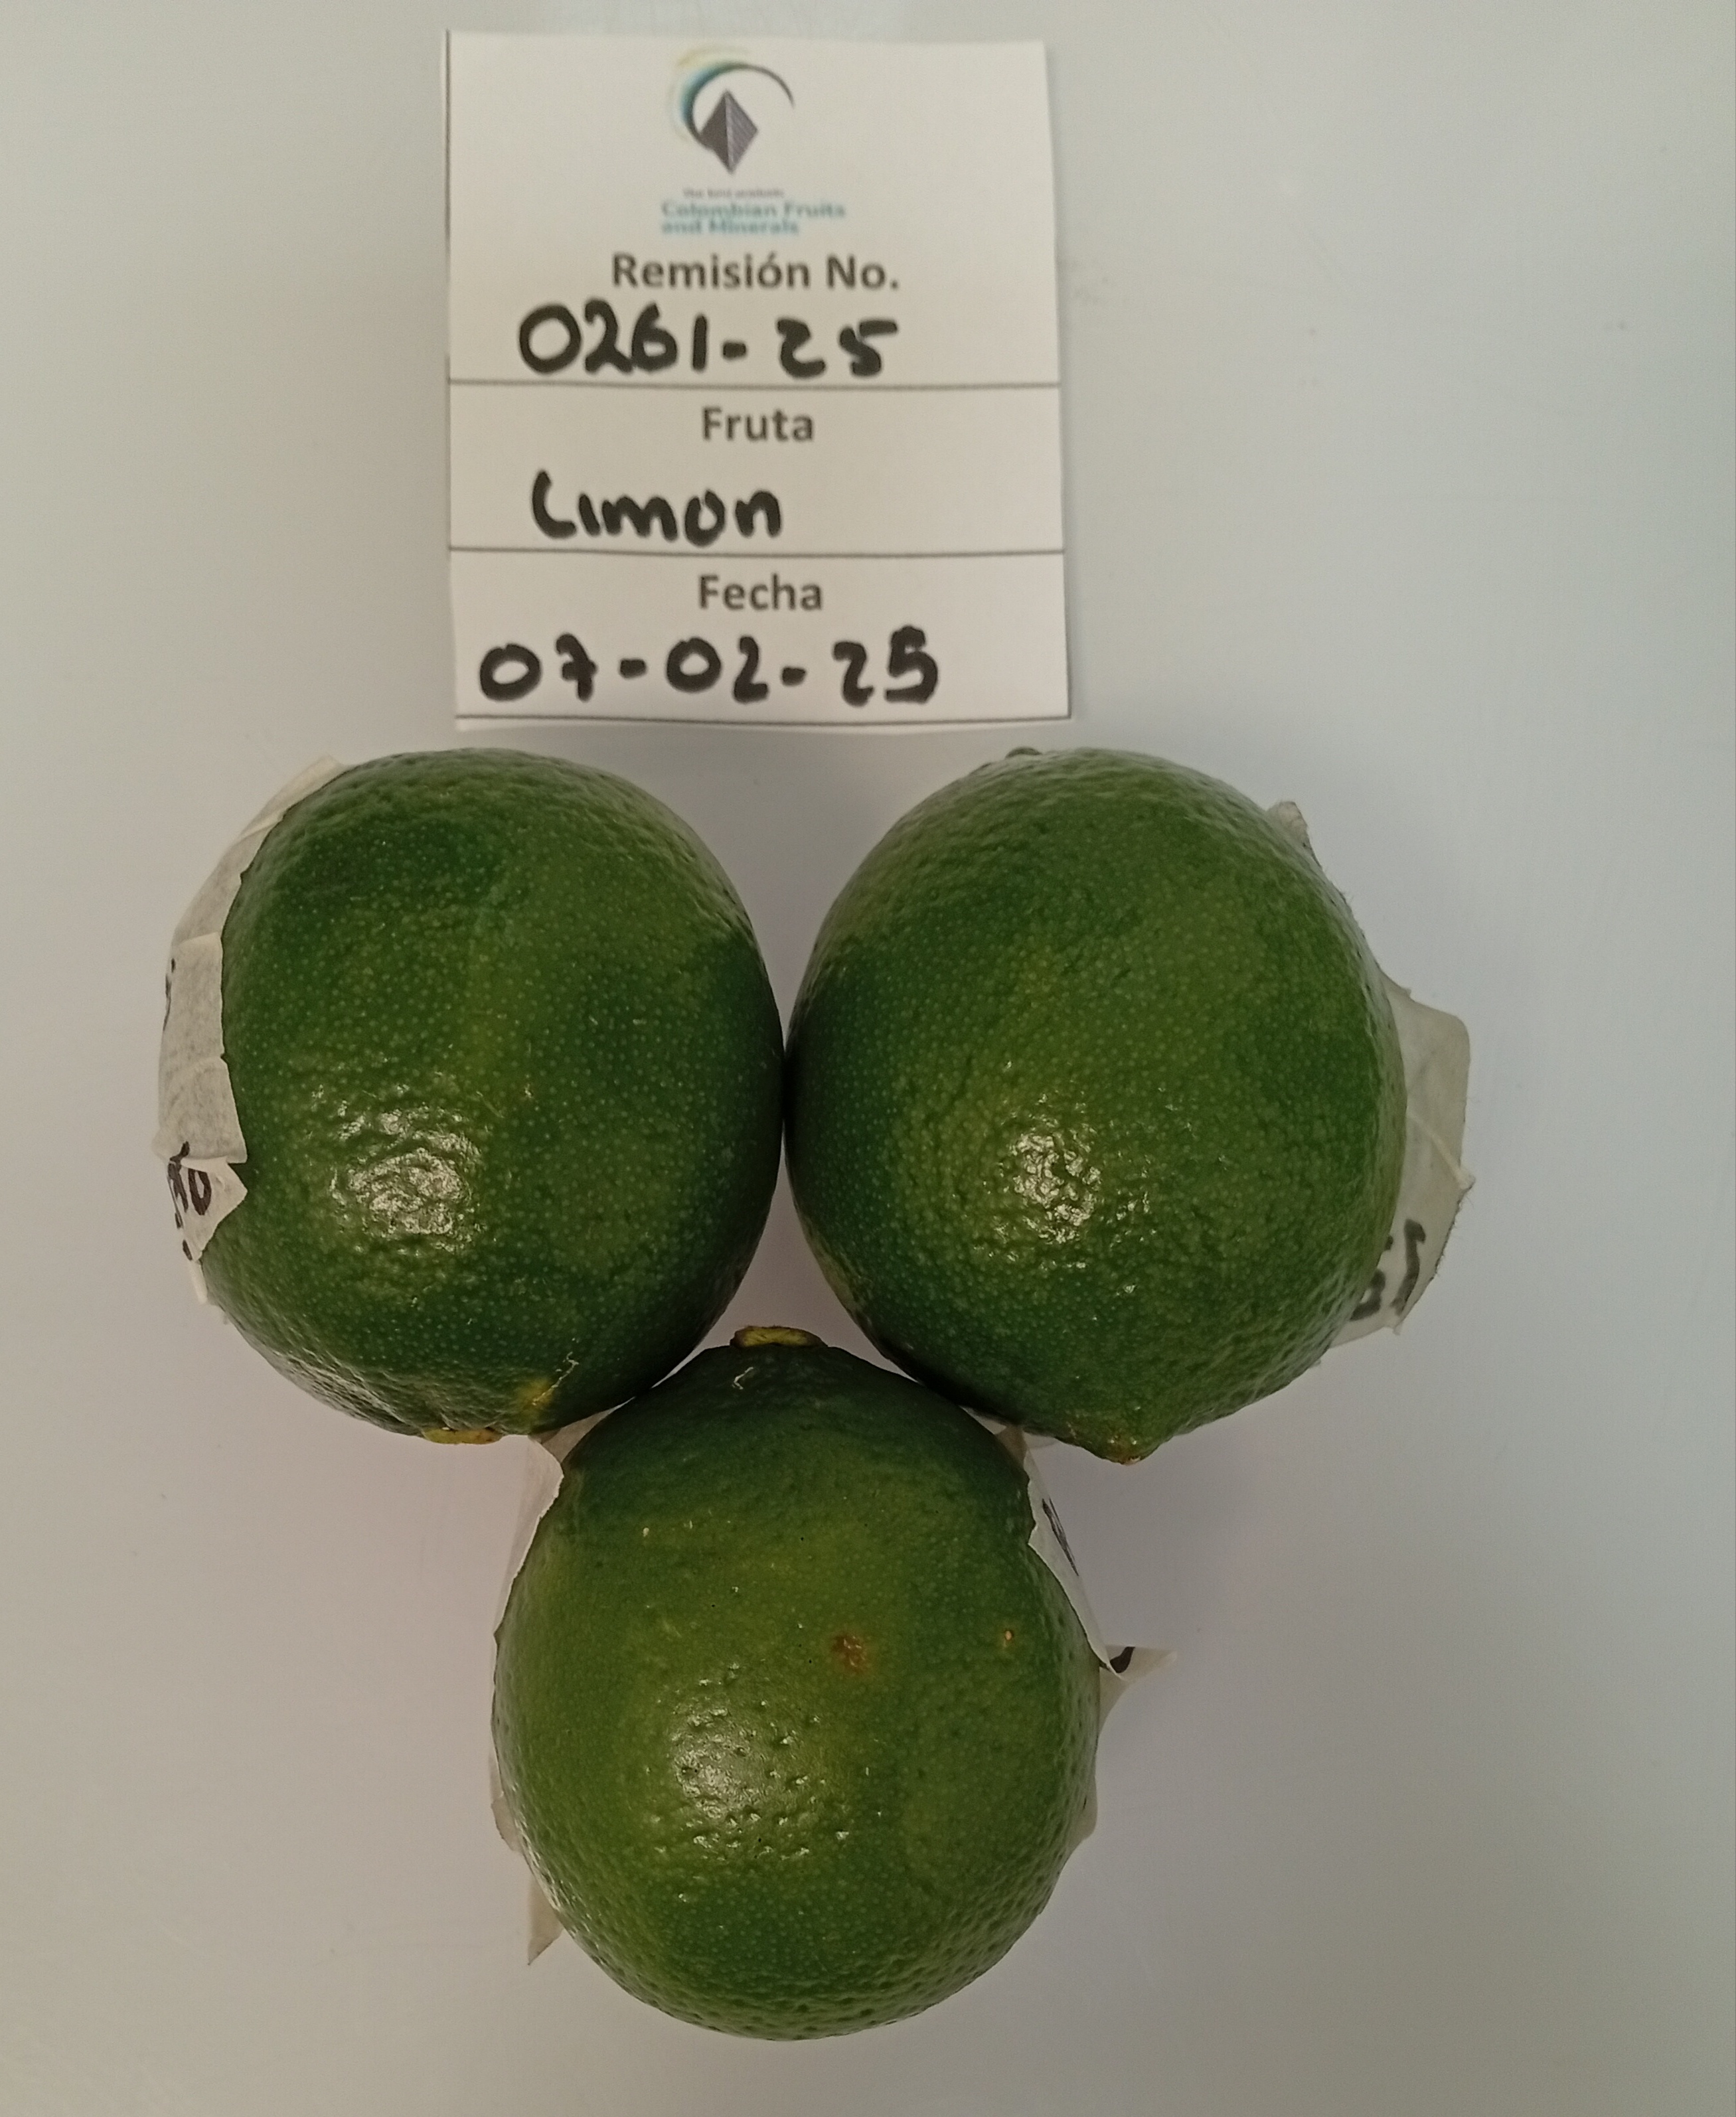 The best products
Colombian Fruits
and Minerals
Remisión No.
0261-25
Fruta
Limon
Fecha
07-02-25